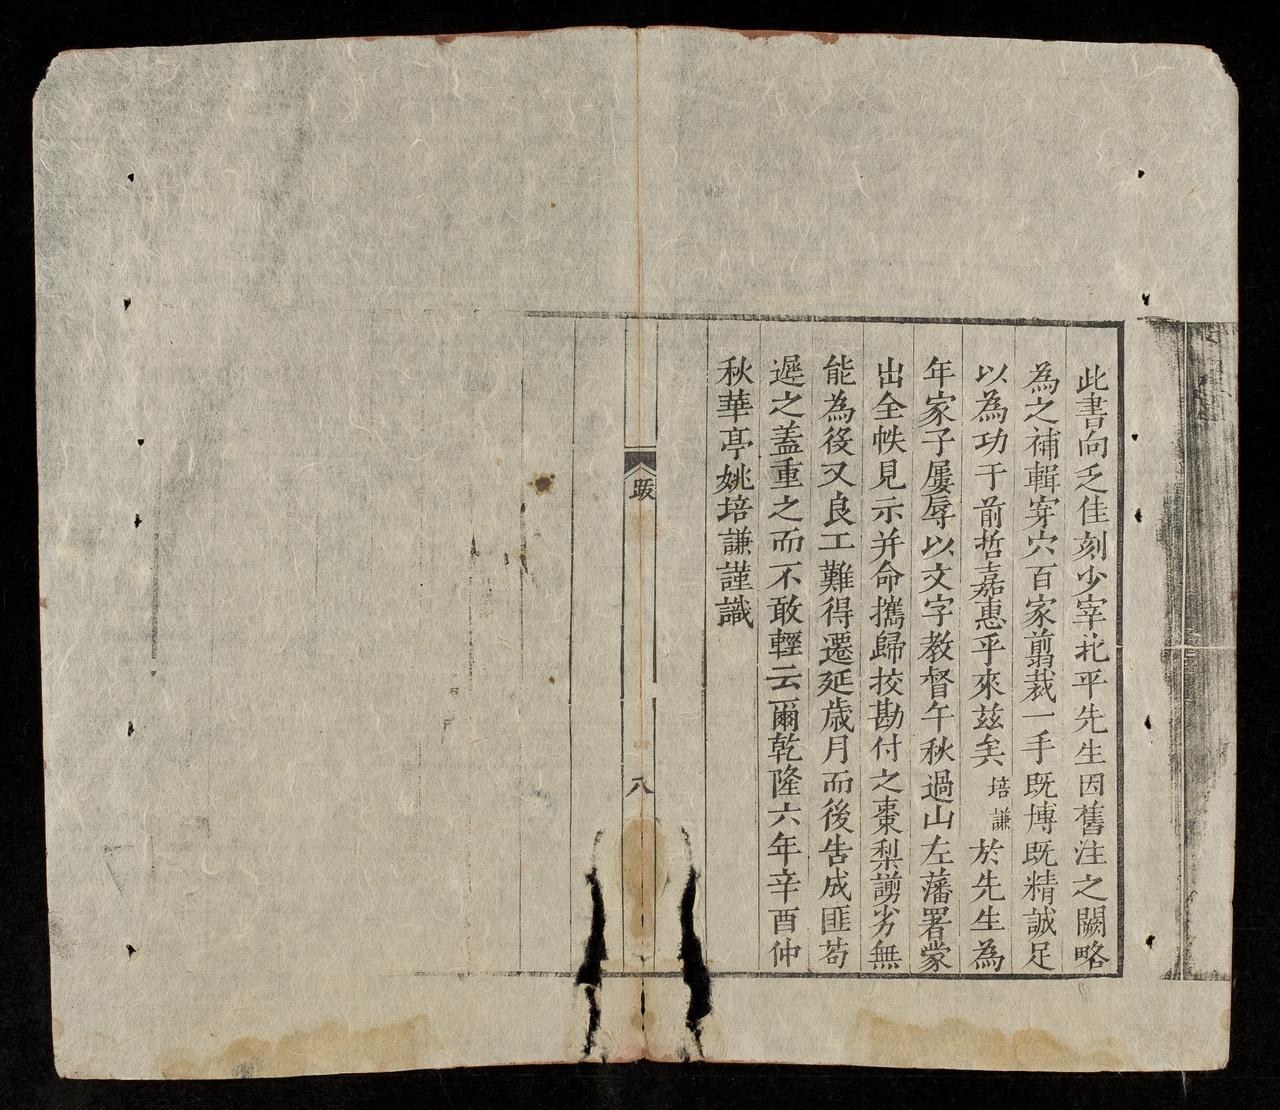 此書向乏佳刻少宰北平先生因舊注之闕略
為之補輯穿穴百家翦裁一手既博既精誠足
以為功于前哲嘉惠乎來茲矣培謙於先生為
年家子屢辱以文字教督午秋過山左藩署蒙
出全帙見示并命攜歸挍勘付之棗梨謭劣無
能為役又良工難得遷延歲月而後告成匪茍
遲之蓋重之而不敢輕云爾乾隆六年辛酉仲
秋華亭姚培謙謹識
跋
八